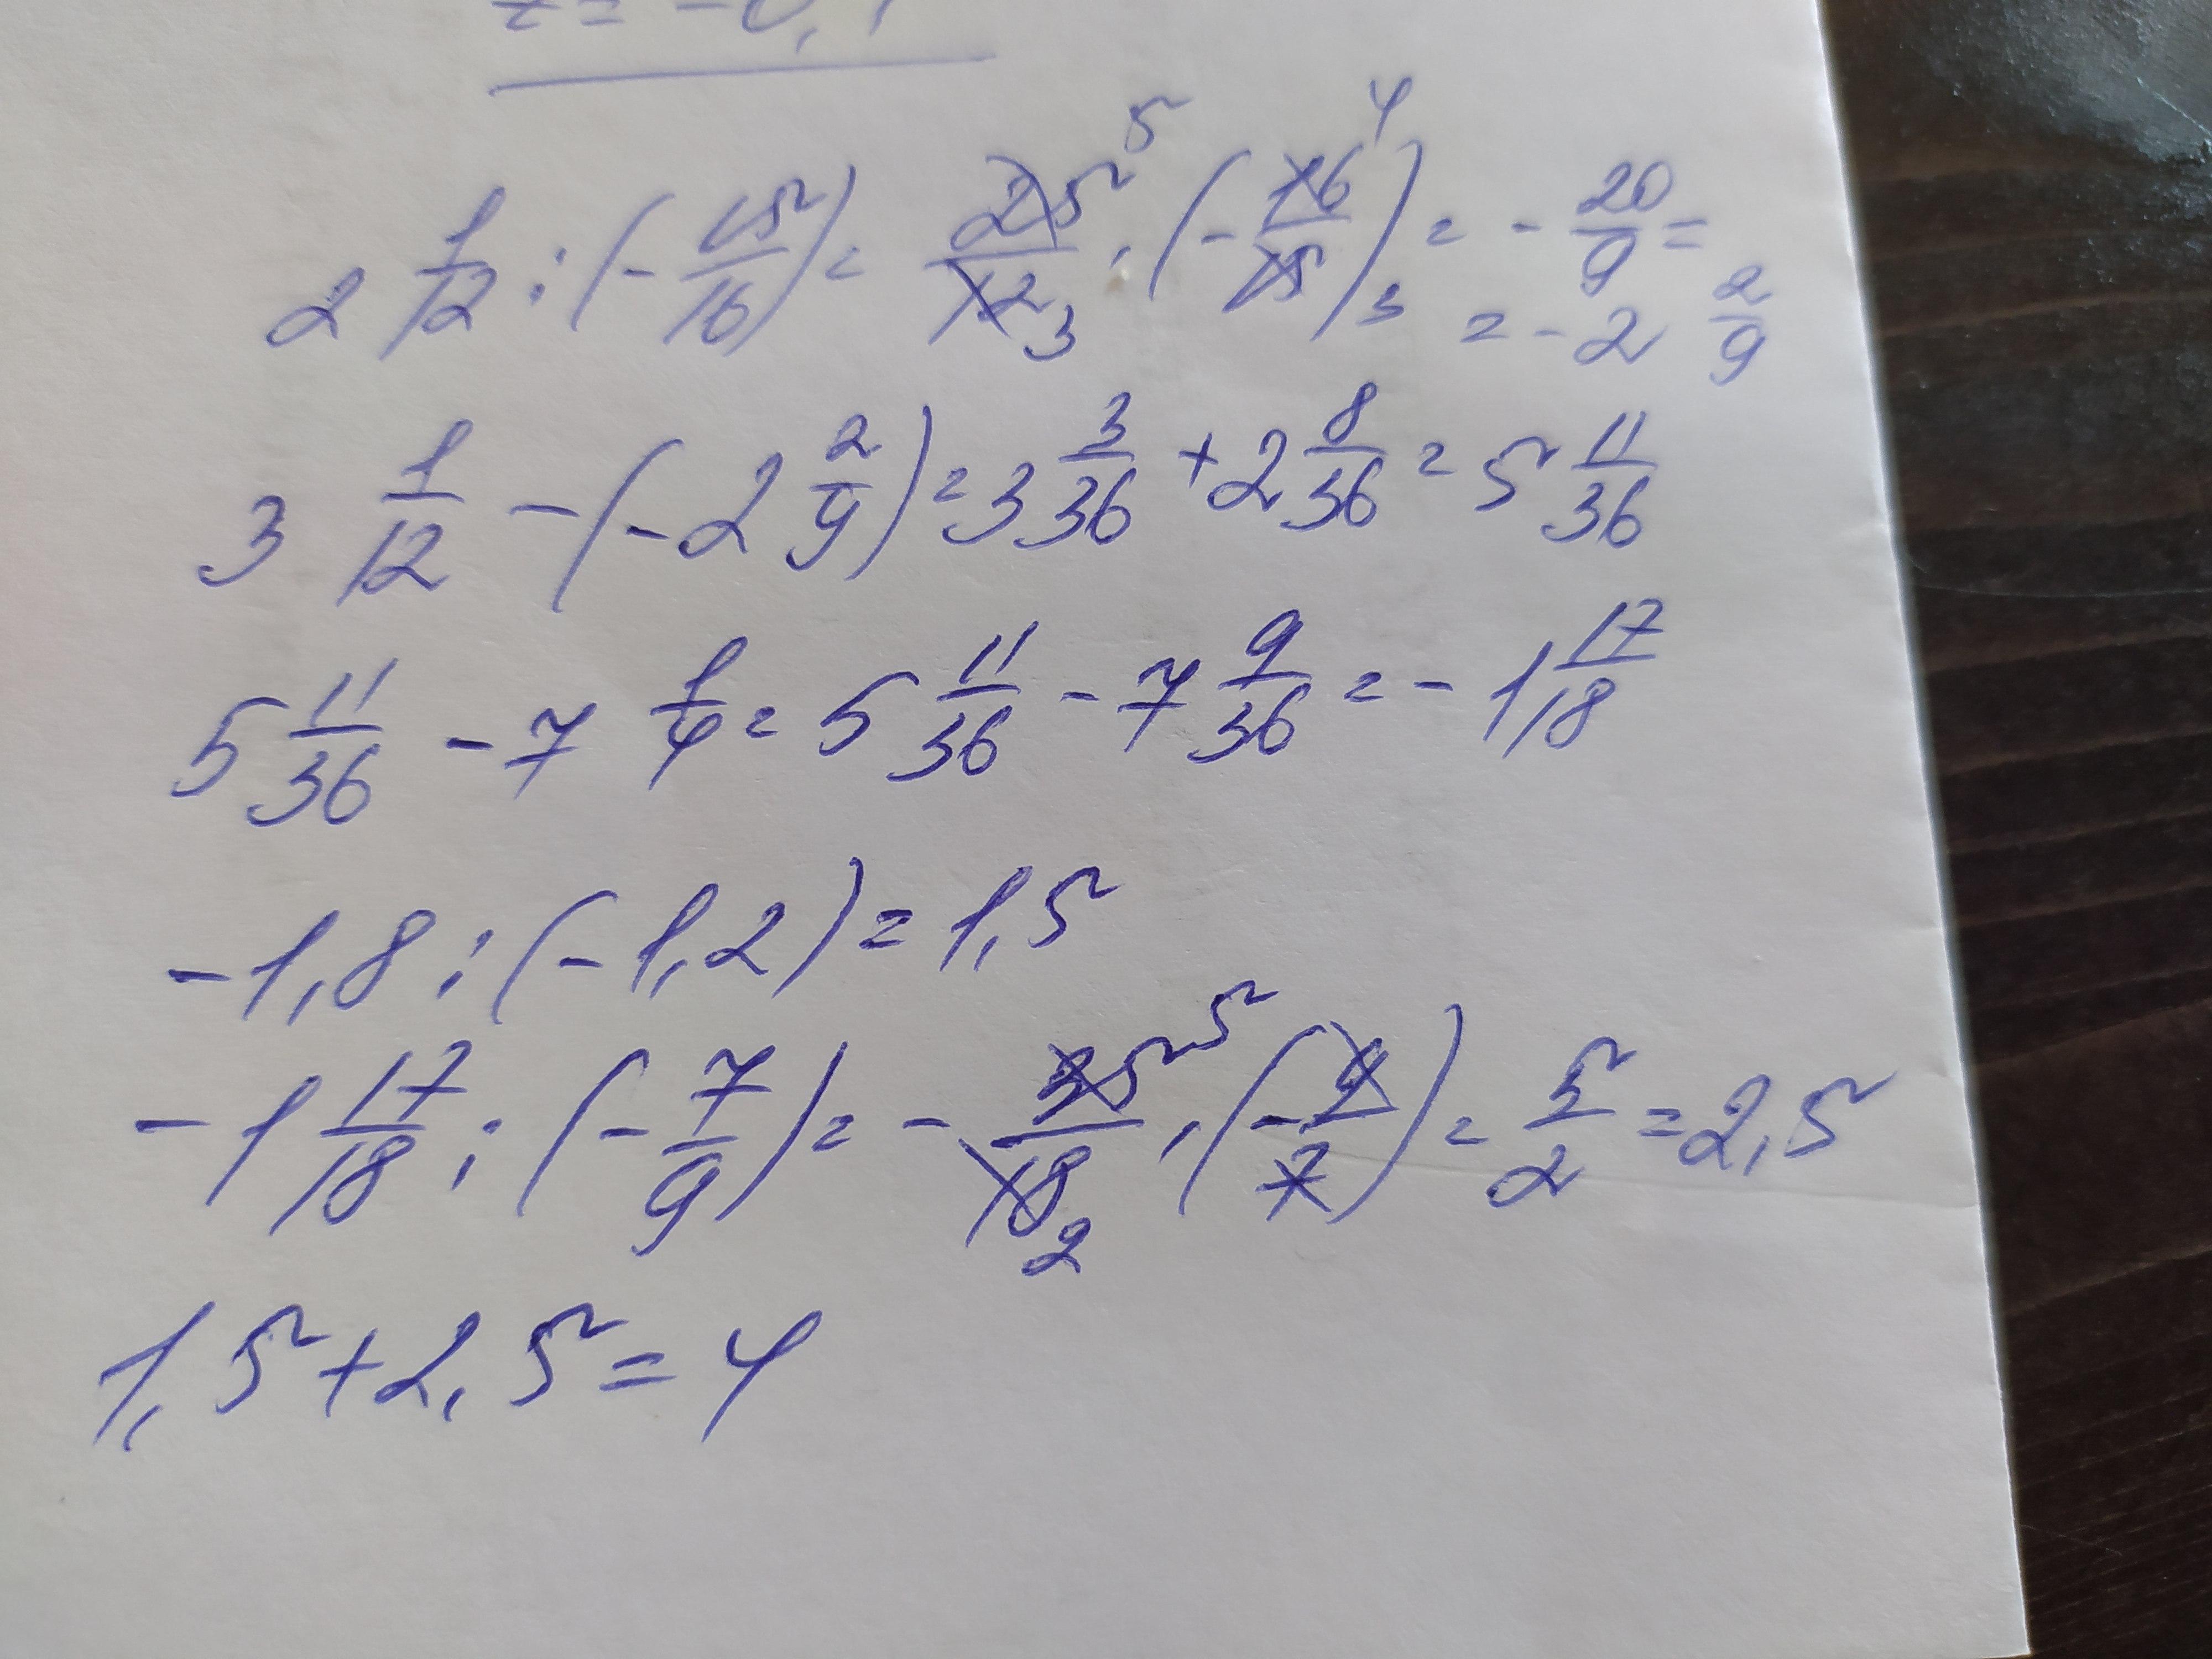 2 1/12 : (- 15/16) = 25/12 · (- 16/15) = - 20/9 =
5 4 3 3
= - 2 2/9
3 1/12 - (- 2 2/9) = 3 3/36 + 2 8/36 = 5 11/36
5 11/36 - 7 1/4 = 5 11/36 - 7 9/36 = - 1 17/18
-1,8 : (-1,2) = 1,5
- 1 17/18 : (- 7/9) = - 35/18 · (- 9/7) = 5/2 = 2,5
5 2
1,5 + 2,5 = 4